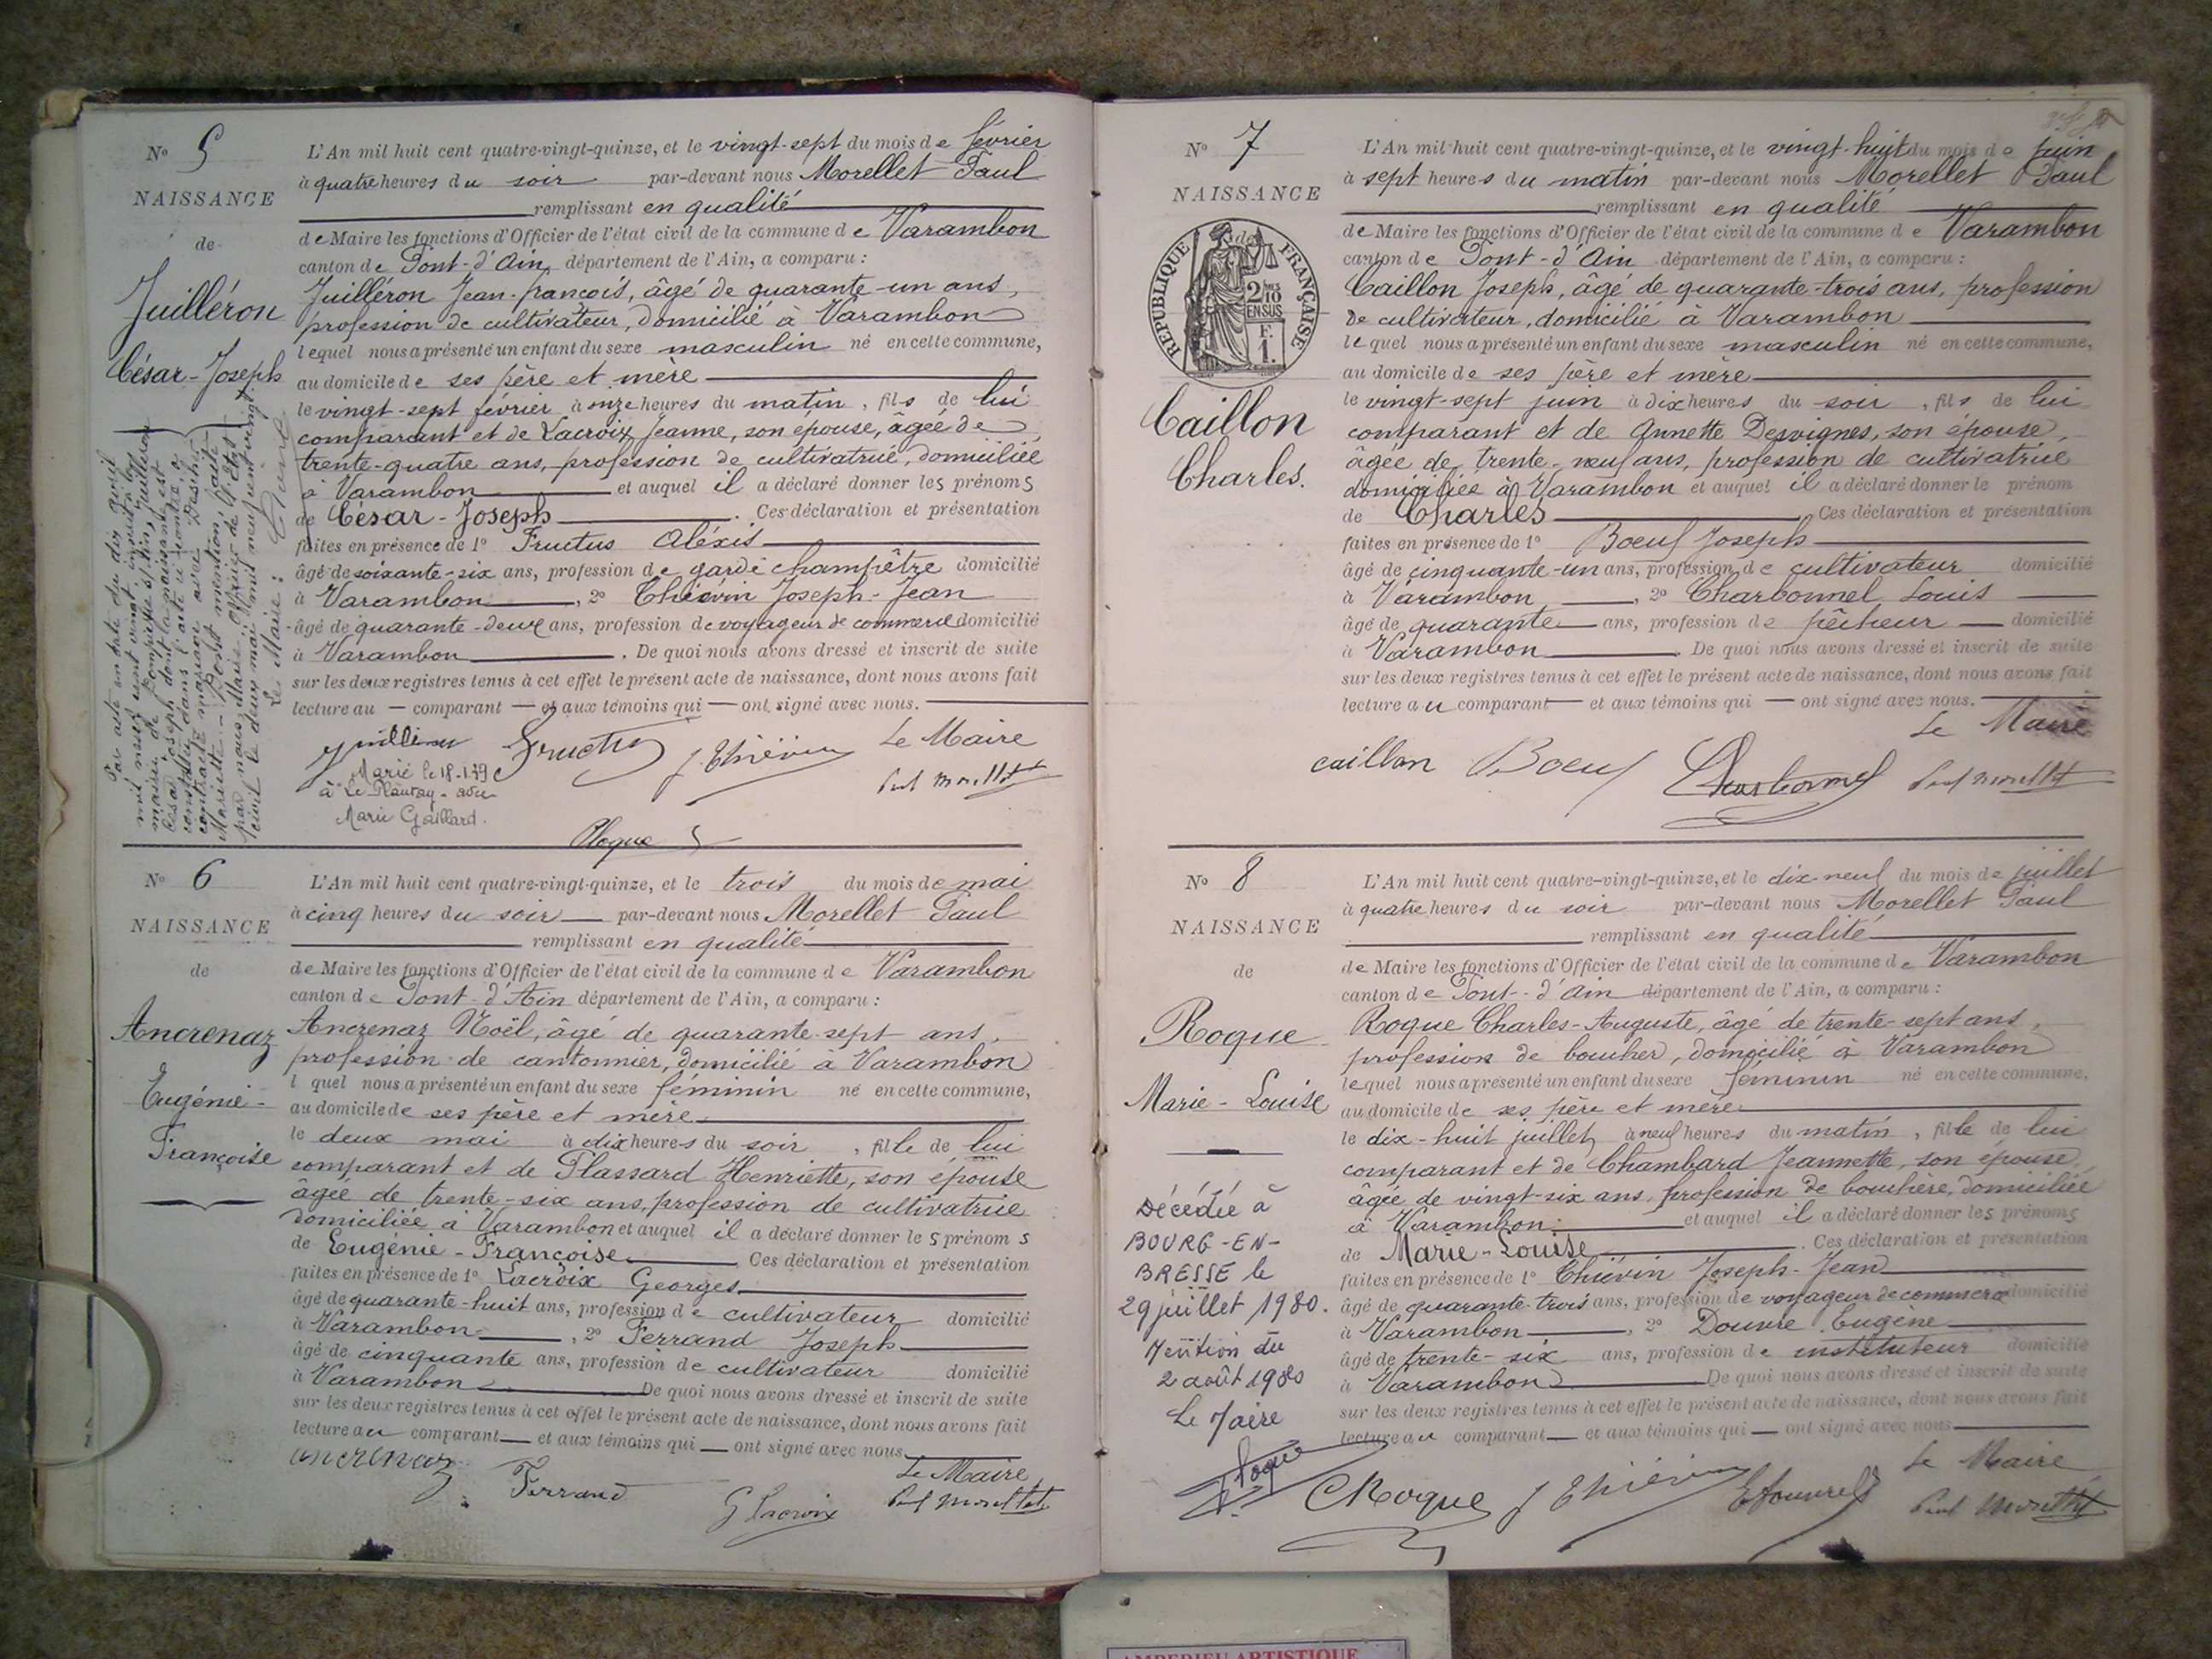 N° 5
NAISSANCE
de
Juilléron
César-Joseph
L'An mil huit cent quatre-vingt-quinze, et le vingt-sept du mois de février
à quatre heures du soir par-devant nous Morellet Paul
remplissant en qualité
de Maire les fonctions d'Officier de l'état civil de la commune de Varambon
canton de Pont-d'Ain, département de l'Ain, a comparu :
Juilléron Jean-françois, âgé de quarante-un ans,
profession de cultivateur, domicilié à Varambon
lequel nous a présenté un enfant du sexe masculin né en cette commune,
au domicile de ses père et mère
le vingt-sept février à onze heures du matin, fils de lui
comparant et de Lacroix Jeanne, son épouse, âgée de
trente-quatre ans, profession de cultivatrice, domiciliée
à Varambon et auquel il a déclaré donner les prénoms
de César-Joseph. Ces déclaration et présentation
faites en présence de 1° Fructus Aléxis
âgé de soixante-six ans, profession de garde champêtre domicilié
à Varambon, 2° Thiévin Joseph-Jean
âgé de quarante-deux ans, profession de voyageur de commerce domicilié
à Varambon. De quoi nous avons dressé et inscrit de suite
sur les deux registres tenus à cet effet le présent acte de naissance, dont nous avons fait
lecture au comparant et aux témoins qui ont signé avec nous.
Le Maire
Fructus J. Thiévin
Marié le 18-1-39
à Le Plantay - avec
Marie Gaillard.
Le Maire :
N° 6
NAISSANCE
de
Ancrenaz
Eugénie-
Françoise
L'An mil huit cent quatre-vingt-quinze, et le trois du mois de mai
à cinq heures du soir par-devant nous Morellet Paul
remplissant en qualité
de Maire les fonctions d'Officier de l'état civil de la commune de Varambon
canton de Pont-d'Ain département de l'Ain, a comparu :
Ancrenaz Noël, âgé de quarante-sept ans,
profession de cantonnier, domicilié à Varambon
l quel nous a présenté un enfant du sexe féminin né en cette commune,
au domicile de ses père et mère
le deux mai à dix heures du soir, fille de lui
comparant et de Plassard Henriette, son épouse
âgée de trente-six ans, profession de cultivatrice
domiciliée à Varambon et auquel il a déclaré donner les prénoms
de Eugénie-Françoise. Ces déclaration et présentation
faites en présence de 1° Lacroix Georges
âgé de quarante-huit ans, profession de cultivateur domicilié
à Varambon, 2° Ferrand Joseph
âgé de cinquante ans, profession de cultivateur domicilié
à Varambon De quoi nous avons dressé et inscrit de suite
sur les deux registres tenus à cet effet le présent acte de naissance, dont nous avons fait
lecture au comparant et aux témoins qui ont signé avec nous
Le Maire
ancrenaz Ferrand G Lacroix Paul Morellet
N° 7
NAISSANCE
RÉPUBLIQUE FRANÇAISE
2/10 EN SUS
F. 1.
Caillon
Charles.
L'An mil huit cent quatre-vingt-quinze, et le vingt-huit du mois de juin
à sept heures du matin par-devant nous Morellet Paul
remplissant en qualité
de Maire les fonctions d'Officier de l'état civil de la commune de Varambon
canton de Pont-d'Ain département de l'Ain, a comparu :
Caillon Joseph, âgé de quarante-trois ans, profession
de cultivateur, domicilié à Varambon
lequel nous a présenté un enfant du sexe masculin né en cette commune,
au domicile de ses père et mère
le vingt-sept juin à dix heures du soir, fils de lui
comparant et de Annette Desvignes, son épouse,
âgée de trente-neuf ans, profession de cultivatrice
domiciliée à Varambon et auquel il a déclaré donner le prénom
de Charles. Ces déclaration et présentation
faites en présence de 1° Boeuf Joseph
âgé de cinquante-un ans, profession de cultivateur domicilié
à Varambon, 2° Charbonnel Louis
âgé de quarante ans, profession de pêcheur domicilié
à Varambon. De quoi nous avons dressé et inscrit de suite
sur les deux registres tenus à cet effet le présent acte de naissance, dont nous avons fait
lecture au comparant et aux témoins qui ont signé avec nous.
Le Maire
caillon Boeuf Charbonnel Paul Morellet
N° 8
NAISSANCE
de
Roque
Marie-Louise
Décédée à
BOURG-EN-
BRESSE le
29 juillet 1980.
Mention du
2 août 1980
Le Maire
L'An mil huit cent quatre-vingt-quinze, et le dix-neuf du mois de juillet
à quatre heures du soir par-devant nous Morellet Paul
remplissant en qualité
de Maire les fonctions d'Officier de l'état civil de la commune de Varambon
canton de Pont-d'Ain département de l'Ain, a comparu :
Roque Charles-Auguste, âgé de trente-sept ans,
profession de boucher, domicilié à Varambon
lequel nous a présenté un enfant du sexe féminin né en cette commune,
au domicile de ses père et mère
le dix-huit juillet, à neuf heures du matin, fille de lui
comparant et de Chambard Jeannette, son épouse,
âgée de vingt-six ans, profession de bouchère, domiciliée
à Varambon et auquel il a déclaré donner les prénoms
de Marie-Louise. Ces déclaration et présentation
faites en présence de 1° Thiévin Joseph-Jean
âgé de quarante-trois ans, profession de voyageur de commerce domicilié
à Varambon, 2° Douvre Eugène
âgé de trente-six ans, profession de instituteur domicilié
à Varambon De quoi nous avons dressé et inscrit de suite
sur les deux registres tenus à cet effet le présent acte de naissance, dont nous avons fait
lecture au comparant et aux témoins qui ont signé avec nous
Le Maire
CRoque J Thiévin Paul Morellet
AMBERIEU ARTISTIQUE